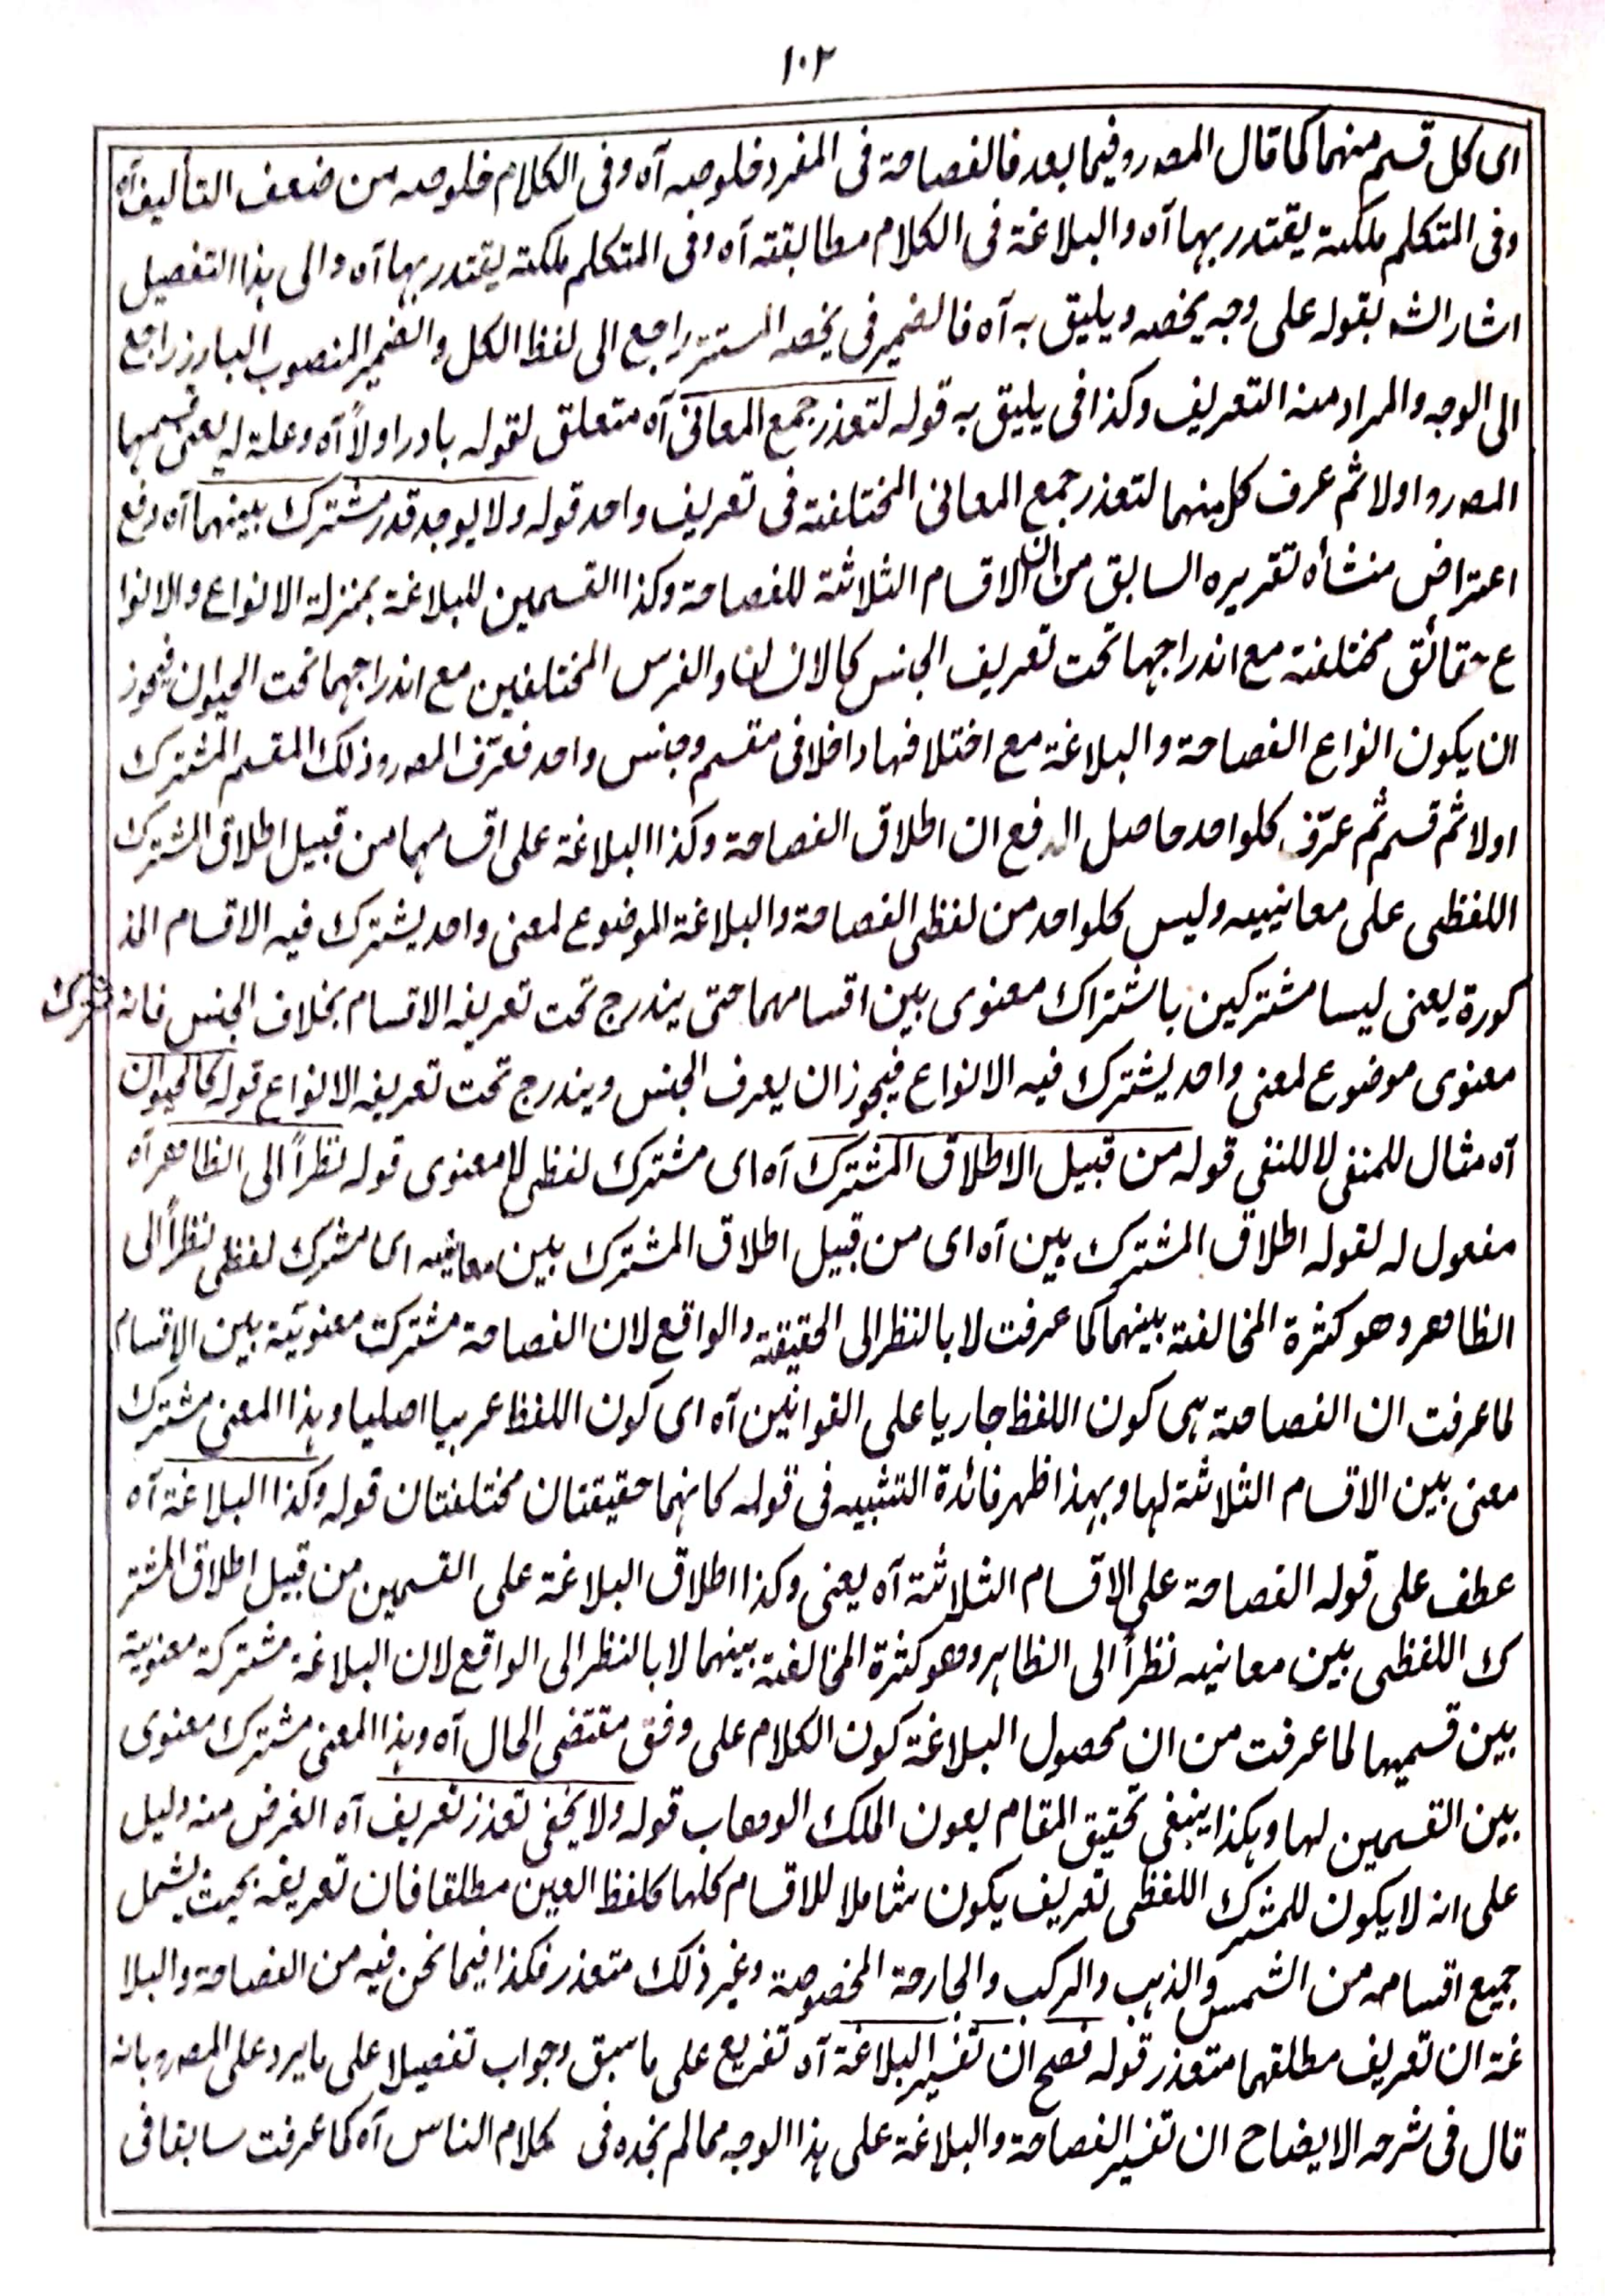 ١٠٢
اى كل قسم منهما كما قال المصر وفيما بعد فالفصاحة فى المفرد خلوصه آه وفى الكلام خلوصه من ضعف التأليف آه
وفى المتكلم ملكة يقتدر بها آه والبلاغة فى الكلام مطابقته آه وفى المتكلم ملكة يقتدر بها آه والى هذا التفصيل
اشار الشه بقوله على وجه يخصه ويليق به آه فالضمير فى يخصه المستتر راجع الى لفظ الكل والضمير المنصوب البارز راجع
الى الوجه والمراد منه التعريف وكذا فى يليق به قوله لتعذر جمع المعانى آه متعلق لقوله بادر اولاً آه وعلة له يعنى قسمهما
المصر و اولا ثم عرف كل منهما لتعذر جمع المعانى المختلفة فى تعريف واحد قوله ولا يوجد قدر مشترك بينهما آه دفع
اعتراض منشأه تقريره السابق من ان الاقسام الثلاثة للفصاحة وكذا القسمين للبلاغة بمنزلة الانواع والانوا
ع حقائق مختلفة مع اندراجها تحت تعريف الجنس كالانسان والفرس المختلفين مع اندراجهما تحت الحيوان فيجوز
ان يكون انواع الفصاحة والبلاغة مع اختلافها داخلا فى مقسم وجنس واحد فعرّف المصر و ذلك المقسم المشترك
اولا ثم قسم ثم عرّف كلواحد حاصل الدفع ان اطلاق الفصاحة وكذا البلاغة على اقسامهما من قبيل اطلاق المشترك
اللفظى على معانييه وليس كلواحد من لفظى الفصاحة والبلاغة الموضوع لمعنى واحد يشترك فيه الاقسام المذ
كورة يعنى ليسا مشتركين باشتراك معنوى بين اقسامهما حتى يندرج تحت تعريفه الاقسام بخلاف الجنس فانه مشترك
معنوى موضوع لمعنى واحد يشترك فيه الانواع فيجوز ان يعرف الجنس ويندرج تحت تعريفه الانواع قوله كالحيوان
آه مثال للمنفى لا للنفى قوله من قبيل الاطلاق المشترك آه اى مشترك لفظى لا معنوى قوله نظراً الى الظاهر آه
مفعول له لقوله اطلاق المشترك بين آه اى من قبيل اطلاق المشترك بين معانيه اى مشترك لفظى نظراً الى
الظاهر وهو كثرة المخالفة بينهما كما عرفت لا بالنظر الى الحقيقة والواقع لان الفصاحة مشتركت معنويّة بين الاقسام
لما عرفت ان الفصاحة هى كون اللفظ جاريا على القوانين آه اى كون اللفظ عربيا اصليا وهذا المعنى مشترك
معنى بين الاقسام الثلاثة لها وبهذا ظهر فائدة التشبيه فى قوله كانهما حقيقتان مختلفتان قوله وكذا البلاغة آه
عطف على قوله الفصاحة على الاقسام الثلاثة آه يعنى وكذا اطلاق البلاغة على القسمين من قبيل اطلاق المشتر
ك اللفظى بين معانيه نظراً الى الظاهر وهو كثرة المخالفة بينهما لا بالنظر الى الواقع لان البلاغة مشتركة معنوية
بين قسميها لما عرفت من ان محصول البلاغة كون الكلام على وفق مقتضى الحال آه وهذا المعنى مشترك معنوى
بين القسمين لها وهكذا ينبغى تحقيق المقام بعون الملك الوهاب قوله ولا يخفى تعذر تعريف آه الغرض منه دليل
على انه لا يكون للمشترك اللفظى تعريف يكون شاملا للاقسام كلها كلفظ العين مطلقا فان تعريفه بحيث يشمل
جميع اقسامه من الشمس والذهب والركب والجارحة المخصوصة وغير ذلك متعذر فكذا فيما نحن فيه من الفصاحة والبلا
غة ان تعريف مطلقهما متعذر قوله فصح ان تفسير البلاغة آه تفريع على ما سبق وجواب تفصيلا على ما يرد على المصر و بانه
قال فى شرحه الايضاح ان تفسير الفصاحة والبلاغة على هذا الوجه مما لم نجده فى كلام الناس آه كما عرفت سابقا فى